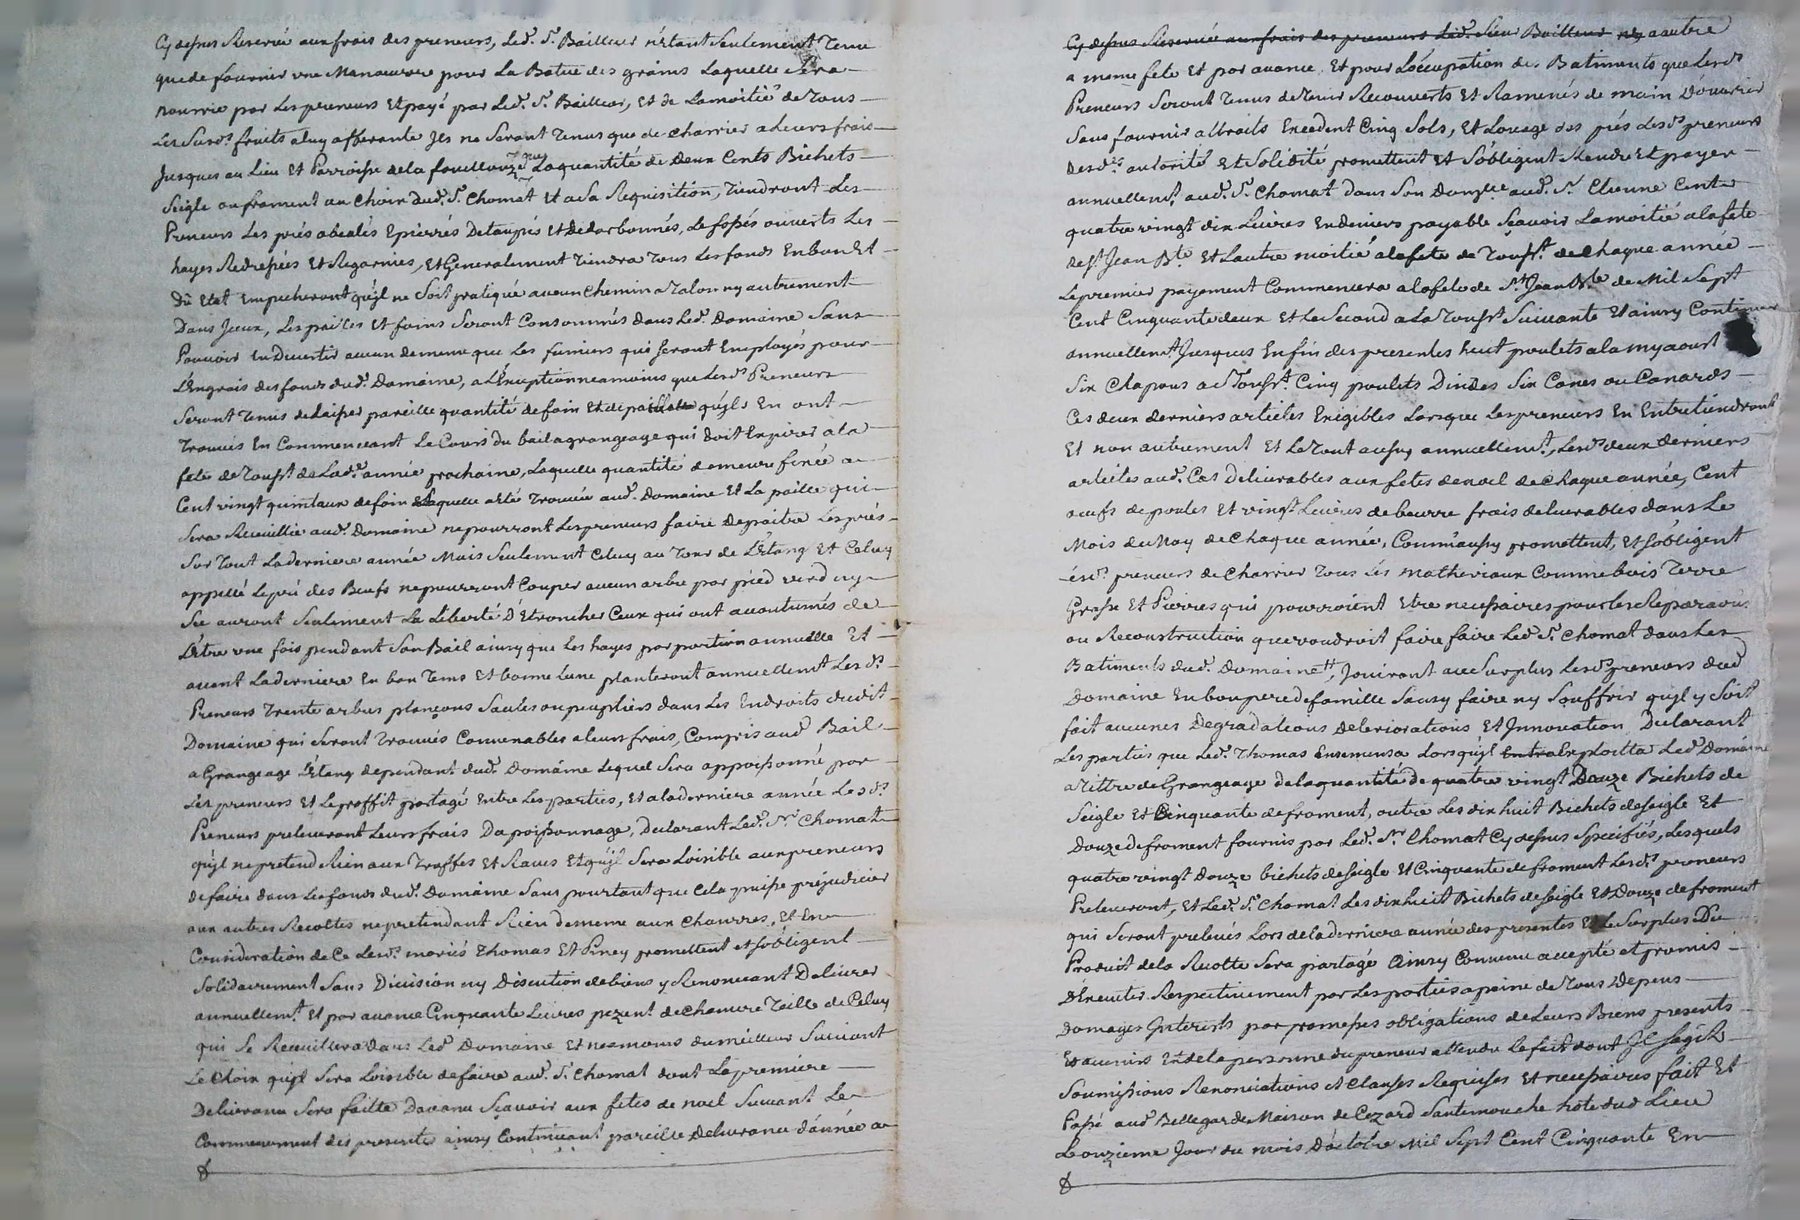 Cy dessus Reservée aux frais des preneurs, Led. Sr. Bailleur n'étant Seulement Tenu
que de fournir une Manoeuvre pour La Batue des grains Laquelle Sera
nourrie par Les preneurs Et payé par Led. Sr. Bailleur, Et de Lamoitié de Tous
Les Susds. fruits a luy afferante Jls ne Seront Tenus que de charrier a Leurs frais
Jusques au Lieu Et Parroisse de la fouillouze Laquantité de Deux Cents Bichets
Seigle ou froment au Choix dud. Sr. Chomat Et a Sa Requisition, Tiendront Les
Preneurs Les prés abealés Epierrés Detaupés et Dedarbonnés, Le fossés ouverts Les
hayes Redressées Et Regarnies, Et Generalement Tiendra Tous Les fonds En bon Et
Dû Etat Empecheront qu'jl ne Soit pratiqué aucun Chemin a Talon ny autrement
Dans Jceux, Les pailles Et foins Seront Consommés dans Led. Domaine Sans
Pouvoir En Divertir aucun de meme que Les fumiers qui Seront Employés pour
L'Engrais des fonds dud. Domaine, a L'Exception neamoins que Lesds. Preneurs
Seront Tenus de Laisser pareille quantité de foin Et de paille qu'jls En ont
Trouvés En Commencant Le Cours du bail a grangeage qui Doit Expirer a la
fete de Toussts. de Lade. année prochaine, Laquelle quantité demeure fixée a
Cent vingt quintaux de foin Laquelle a été Trouvée aud. Domaine Et La paille qui
Sera Recueillie aud. Domaine ne pourront Les preneurs faire Depaitre Les prés
Sur Tout La derniere année Mais Seulement Celuy au Tour de L'Etang Et Celuy
appellé Le pré des Boeufs ne pourront Couper aucun arbre par pied verd ny
Sec auront Seulement La Liberté D'Etroncher Ceux qui ont accoutumés de
L'être une fois pendant Son Bail ainsy que Les hayes par portion annuelle Et
avant La derniere En bon Tems Et bonne Lune planteront annuellemt Lesds.
Preneurs Trente arbres plançons Saules ou peupliers dans Les Endroits dudit
Domaine qui Seront Trouvés Convenables a Leurs frais, Compris aud Bail
a Grangeage L'Etang dependant dud. Domaine Lequel Sera appoissonné par
Les preneurs Et Le proffit partagé Entre Les parties, Et a la derniere année Lesds.
Preneurs preleveront Leurs frais Dapoissonnage, Declarant Led. Sr. Chomat
qu'jl ne pretend Rien aux Truffes Et Raves Et qu'jl Sera Loisible aux preneurs
de faire dans Les fonds dud. Domaine Sans pourtant que Cela puisse préjudicier
aux autres Recoltes ne pretendant Rien de meme aux Chanvres, Et En
Consideration de Ce Lesds. mariés Thomas Et Piney promettent et S'obligent
Solidairement Sans Division ny Discution de biens y Renoncant Delivrer
annuellemt. Et par avance Cinquante Livres pezent de Chanvre Taillé de Celuy
qui Se Recueillera dans Led Domaine Et neamoins du meilleur Suivant
Le Choix qu'jl Sera Loisible de faire aud. Sr. Chomat dont La premiere
Delivrance Sera faitte Davance Sçavoir aux fetes de noel Suivant Le
Commencement des presentes ainsy Continuant pareille Delivrance d'année a
Cy dessus Reservée aux frais des preneurs Led. Sieur Bailleur ny a autre
a meme fete Et par avance, Et pour L'occupation des Batiments que Lesds
Preneurs Seront Tenus de Tenir Recouverts Et Ramenés de main D'ouvrier
Sans fournir attraits Excedent Cinq Sols, Et L'ousage des prés Lesds preneurs
Desdes. autorité Et Solidité promettent Et S'obligent Rendre Et payer
annuellemt. aud. Sr. Chomat dans Son Domyle aud. St. Etienne Cent
quatre vingt dix Livres En deniers payable Sçavoir La moitié a la fete
de St Jean Bte. Et Lautre moitié a la fete de Toussts. de Chaque année
Le premier payement Commencera a la fete de St Jean Bte de Mil Sept
Cent Cinquante deux Et Le Second a La Toussts Suivante Et ainsy Continuer
annuellemt Jusques En fin des presentes huit poulets a la my aoust
Six Chapons a Toussts. Cinq poulets Dindes Six Canes ou Canards
Ces deux derniers articles Exigibles Lorsque Les preneurs En Entretiendront
Et non autrement Et Le Tout aussy annuellemt. Lesds deux derniers
articles aud. Cas Delivrables aux fetes de noel de Chaque année, Cent
oeufs de poules Et vingt Livres de beurre frais delivrables dans Le
Mois de May de Chaque année, Comm'aussy promettent, Et S'obligent
Lesds. preneurs de Charrier Tous Les matheriaux Comme bois Terre
Grasse Et Pierres qui pourroient Etre necessaires pour Les Reparaons
ou Reconstruction que voudroit faire faire Led. Sr. Chomat dans Les
Batiments dud. Domaine, Jouiront au Surplus Lesds preneurs dud
Domaine En bon pere de famille Sans y faire ny Souffrir qu'jl y Soit
fait aucunes Degradations Deteriorations Et Jnnovation Declarant
Les parties que Led. Thomas Ensemença Lorsqu'jl Entra Exploitta Led. Domaine
a Tittre de Grangeage de la quantité de quatre vingt Douze Bichets de
Seigle Et Cinquante de froment, outre Les dix huit Bichets de Seigle Et
Douze de froment fournis par Led. Sr. Chomat Cy dessus Specifiés, Lesquels
quatre vingt Douze bichets de Seigle Et Cinquante de froment Lesds preneurs
Preleveront, Et Led. Sr. Chomat Les dix huit Bichets de Seigle Et Douze de froment
qui Seront prelevés Lors de la derniere année des presentes Et Le Surplus Du
Produit de la Recolte Sera partagé Ainsy Convenu accepté et promis
D'Executer Respectivement par Les parties a peine de Tous Depens
Domages Jnterests par promesses obligations de Leurs Biens presents
Et avenirs Et de la personne du preneur attendu le fait dont Jl S'agit
Soumissions Renonciations Et Clauses Requises Et necessaires fait Et
Passé aud Bellegarde Maison de Cezard Santemouche hote dud Lieu
Le onzieme Jour du mois D'octobre Mil Sept Cent Cinquante En